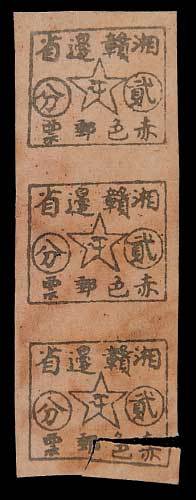 湘贛邊省
貳分
赤色郵票
湘贛邊省
貳分
赤色郵票
湘贛邊省
貳分
赤色郵票